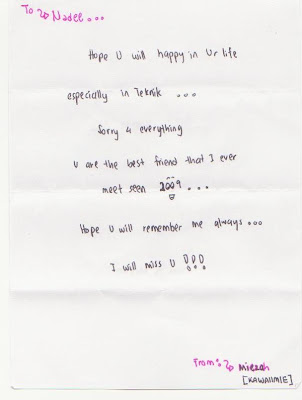 To Nadee...
Hope U will happy in Ur life
especially in Teknik ...
Sorry 4 everything
U are the best friend that I ever
meet seen 2009...
Hope U will remember me always...
I will miss U !!!
From: miezah
[KAWAIIMIE]